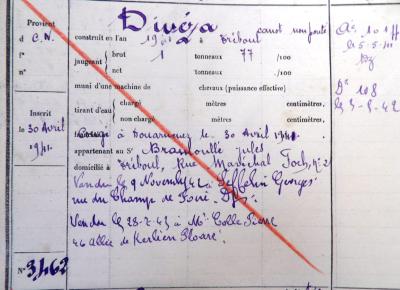 Divéza
canot non ponté
Provient
d C. N.
construit en l'an 19 à Tréboul
f°
n°
jaugeant
brut 1 tonneaux 77 /100
net tonneaux /100
muni d'une machine de chevaux (puissance effective)
tirant d'eau
chargé mètres centimètres.
non chargé mètres centimètres.
Inscrit
le 30 Avril
1941.
à Douarnenez le 30 Avril 1941.
appartenant au Sr Bramoullé Jules
domicilié à Tréboul, Rue Maréchal Foch, n° 2
Vendu le 9 Novembre 42 à Georges
rue du Champ de Foire.
Vendu le 28-7-43 à Mr Colle Pierre
46 allée de Kerlien Ploaré.
N° 3462
As 101
le 5-5-
Ds 108
le 5-42